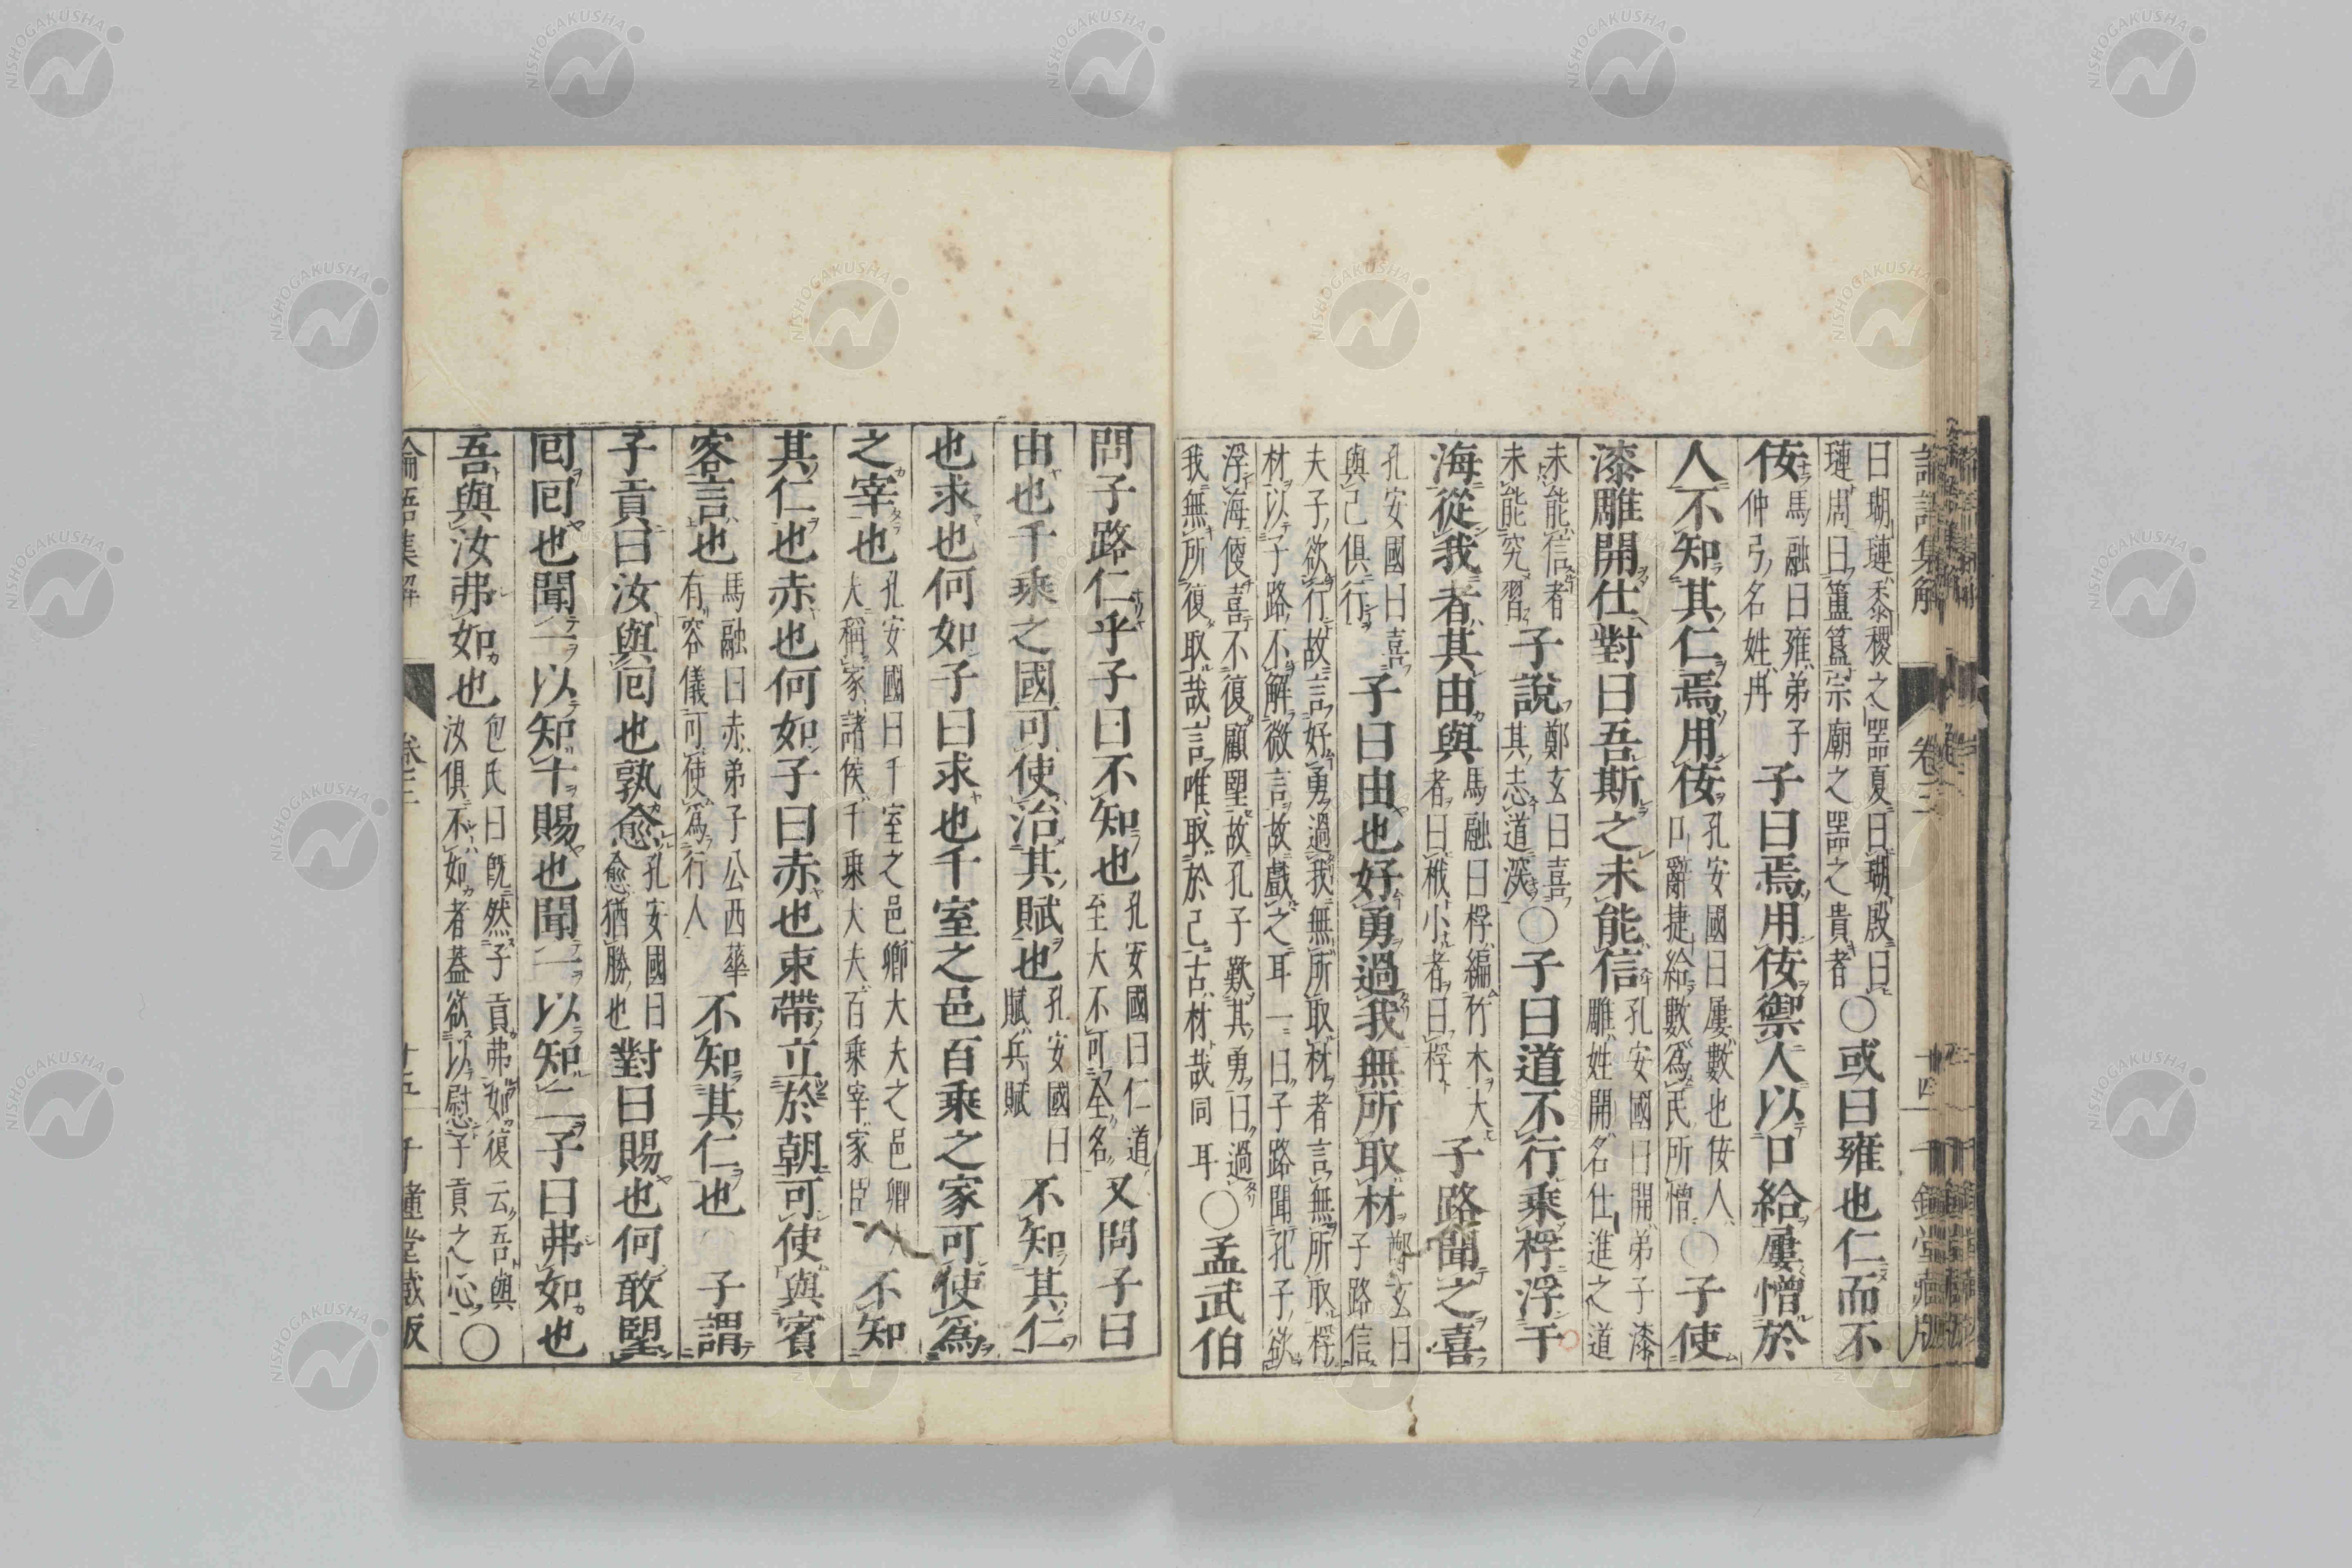 曰瑚璉黍稷之器夏曰瑚殷曰
璉周曰簠簋宗廟之器之貴者○或曰雍也仁而不
佞馬融曰雍弟子
仲弓名姓冉子曰焉用佞禦人以口給屢憎於
人不知其仁焉用佞孔安國曰屢數也佞人
口辭捷給數爲民所憎○子使
漆雕開仕對曰吾斯之未能信孔安國曰開弟子漆
雕姓開名仕進之道
未能信者
未能究習子說鄭玄曰喜
其志道深○子曰道不行乘桴浮于
海從我者其由與馬融曰桴編竹木大
者曰栰小者曰桴子路聞之喜
孔安國曰喜
與己俱行子曰由也好勇過我無所取材鄭玄曰
子路信
夫子欲行故言好勇過我無所取材者言無所取桴
材以子路不解微言故戲之耳一曰子路聞孔子欲
浮海便喜不復顧望故孔子歎其勇曰過
我無所復取哉言唯取於己古材哉同耳○孟武伯
論語集解 卷三 十四 千鍾堂藏版
問子路仁乎子曰不知也孔安國曰仁道
至大不可全名又問子曰
由也千乘之國可使治其賦也孔安國曰
賦兵賦不知其仁
也求也何如子曰求也千室之邑百乘之家可使爲
之宰也孔安國曰千室之邑卿大夫之邑卿大
夫稱家諸侯千乘大夫百乘宰家臣不知
其仁也赤也何如子曰赤也束帶立於朝可使與賓
客言也馬融曰赤弟子公西華
有容儀可使爲行人不知其仁也○子謂
子貢曰汝與囘也孰愈孔安國曰
愈猶勝也對曰賜也何敢望
囘囘也聞一以知十賜也聞一以知二子曰弗如也
吾與汝弗如也包氏曰旣然子貢弗如復云吾與
汝俱不如者蓋欲以慰子貢之心○
論語集解 卷三 十五 千鍾堂藏版